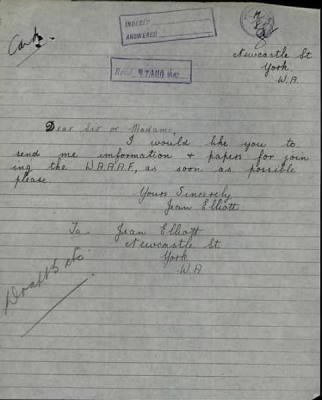 INDEXED
ANSWERED
Newcastle St
York
W.A.
Dear Sir or Madame,
I would like you to
send me information + papers for join
ing the W.A.A.A.F, as soon as possible
please.
Yours Sincerely
Jean Elliott
To Jean Elliott
Newcastle St
York
W.A